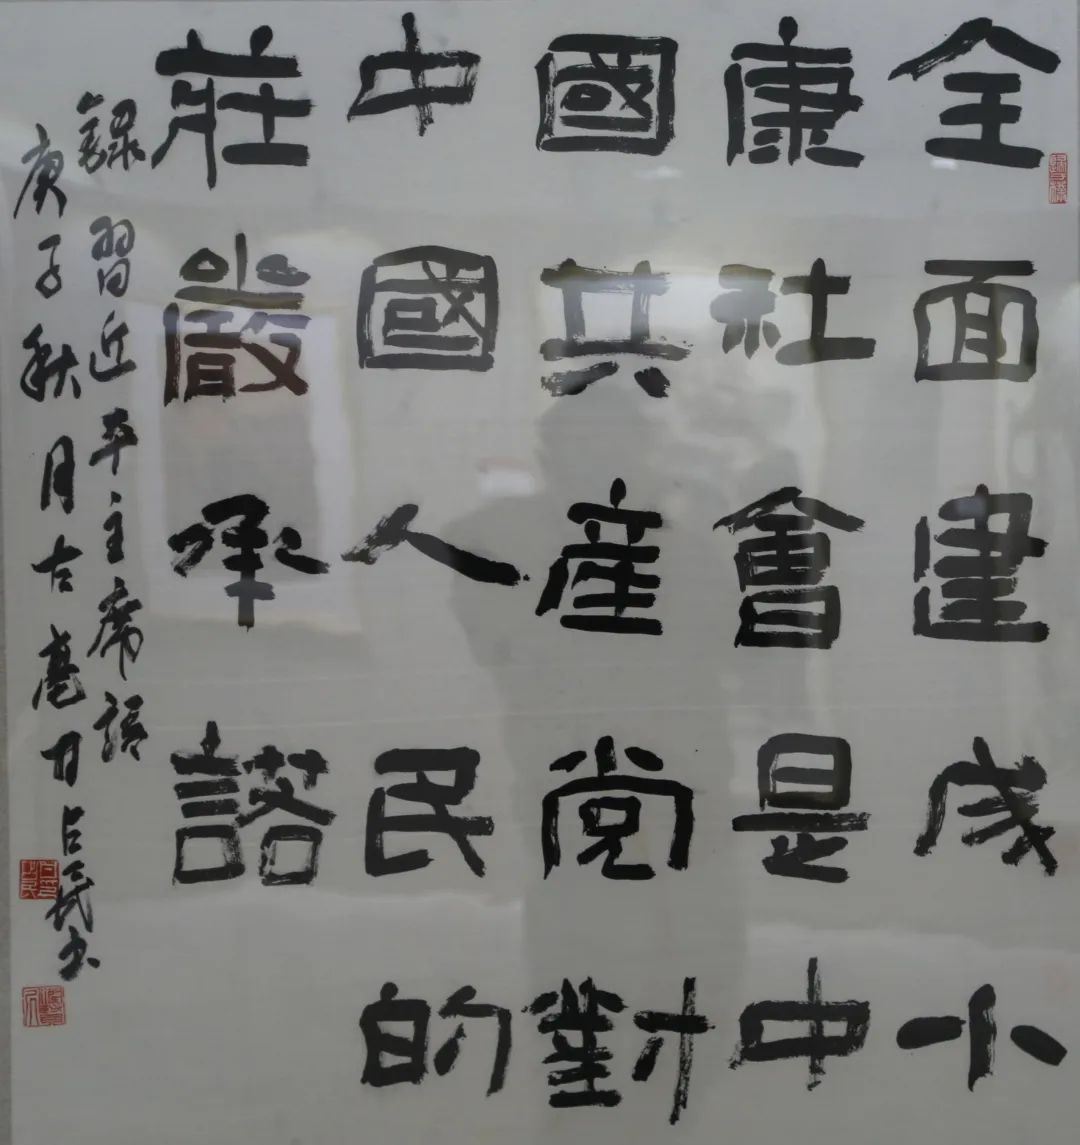 全面建成小
康社會是中
國共産党對
中國人民的
莊嚴承諾
錄習近平主席語
庚子秋月古亳刀占民书